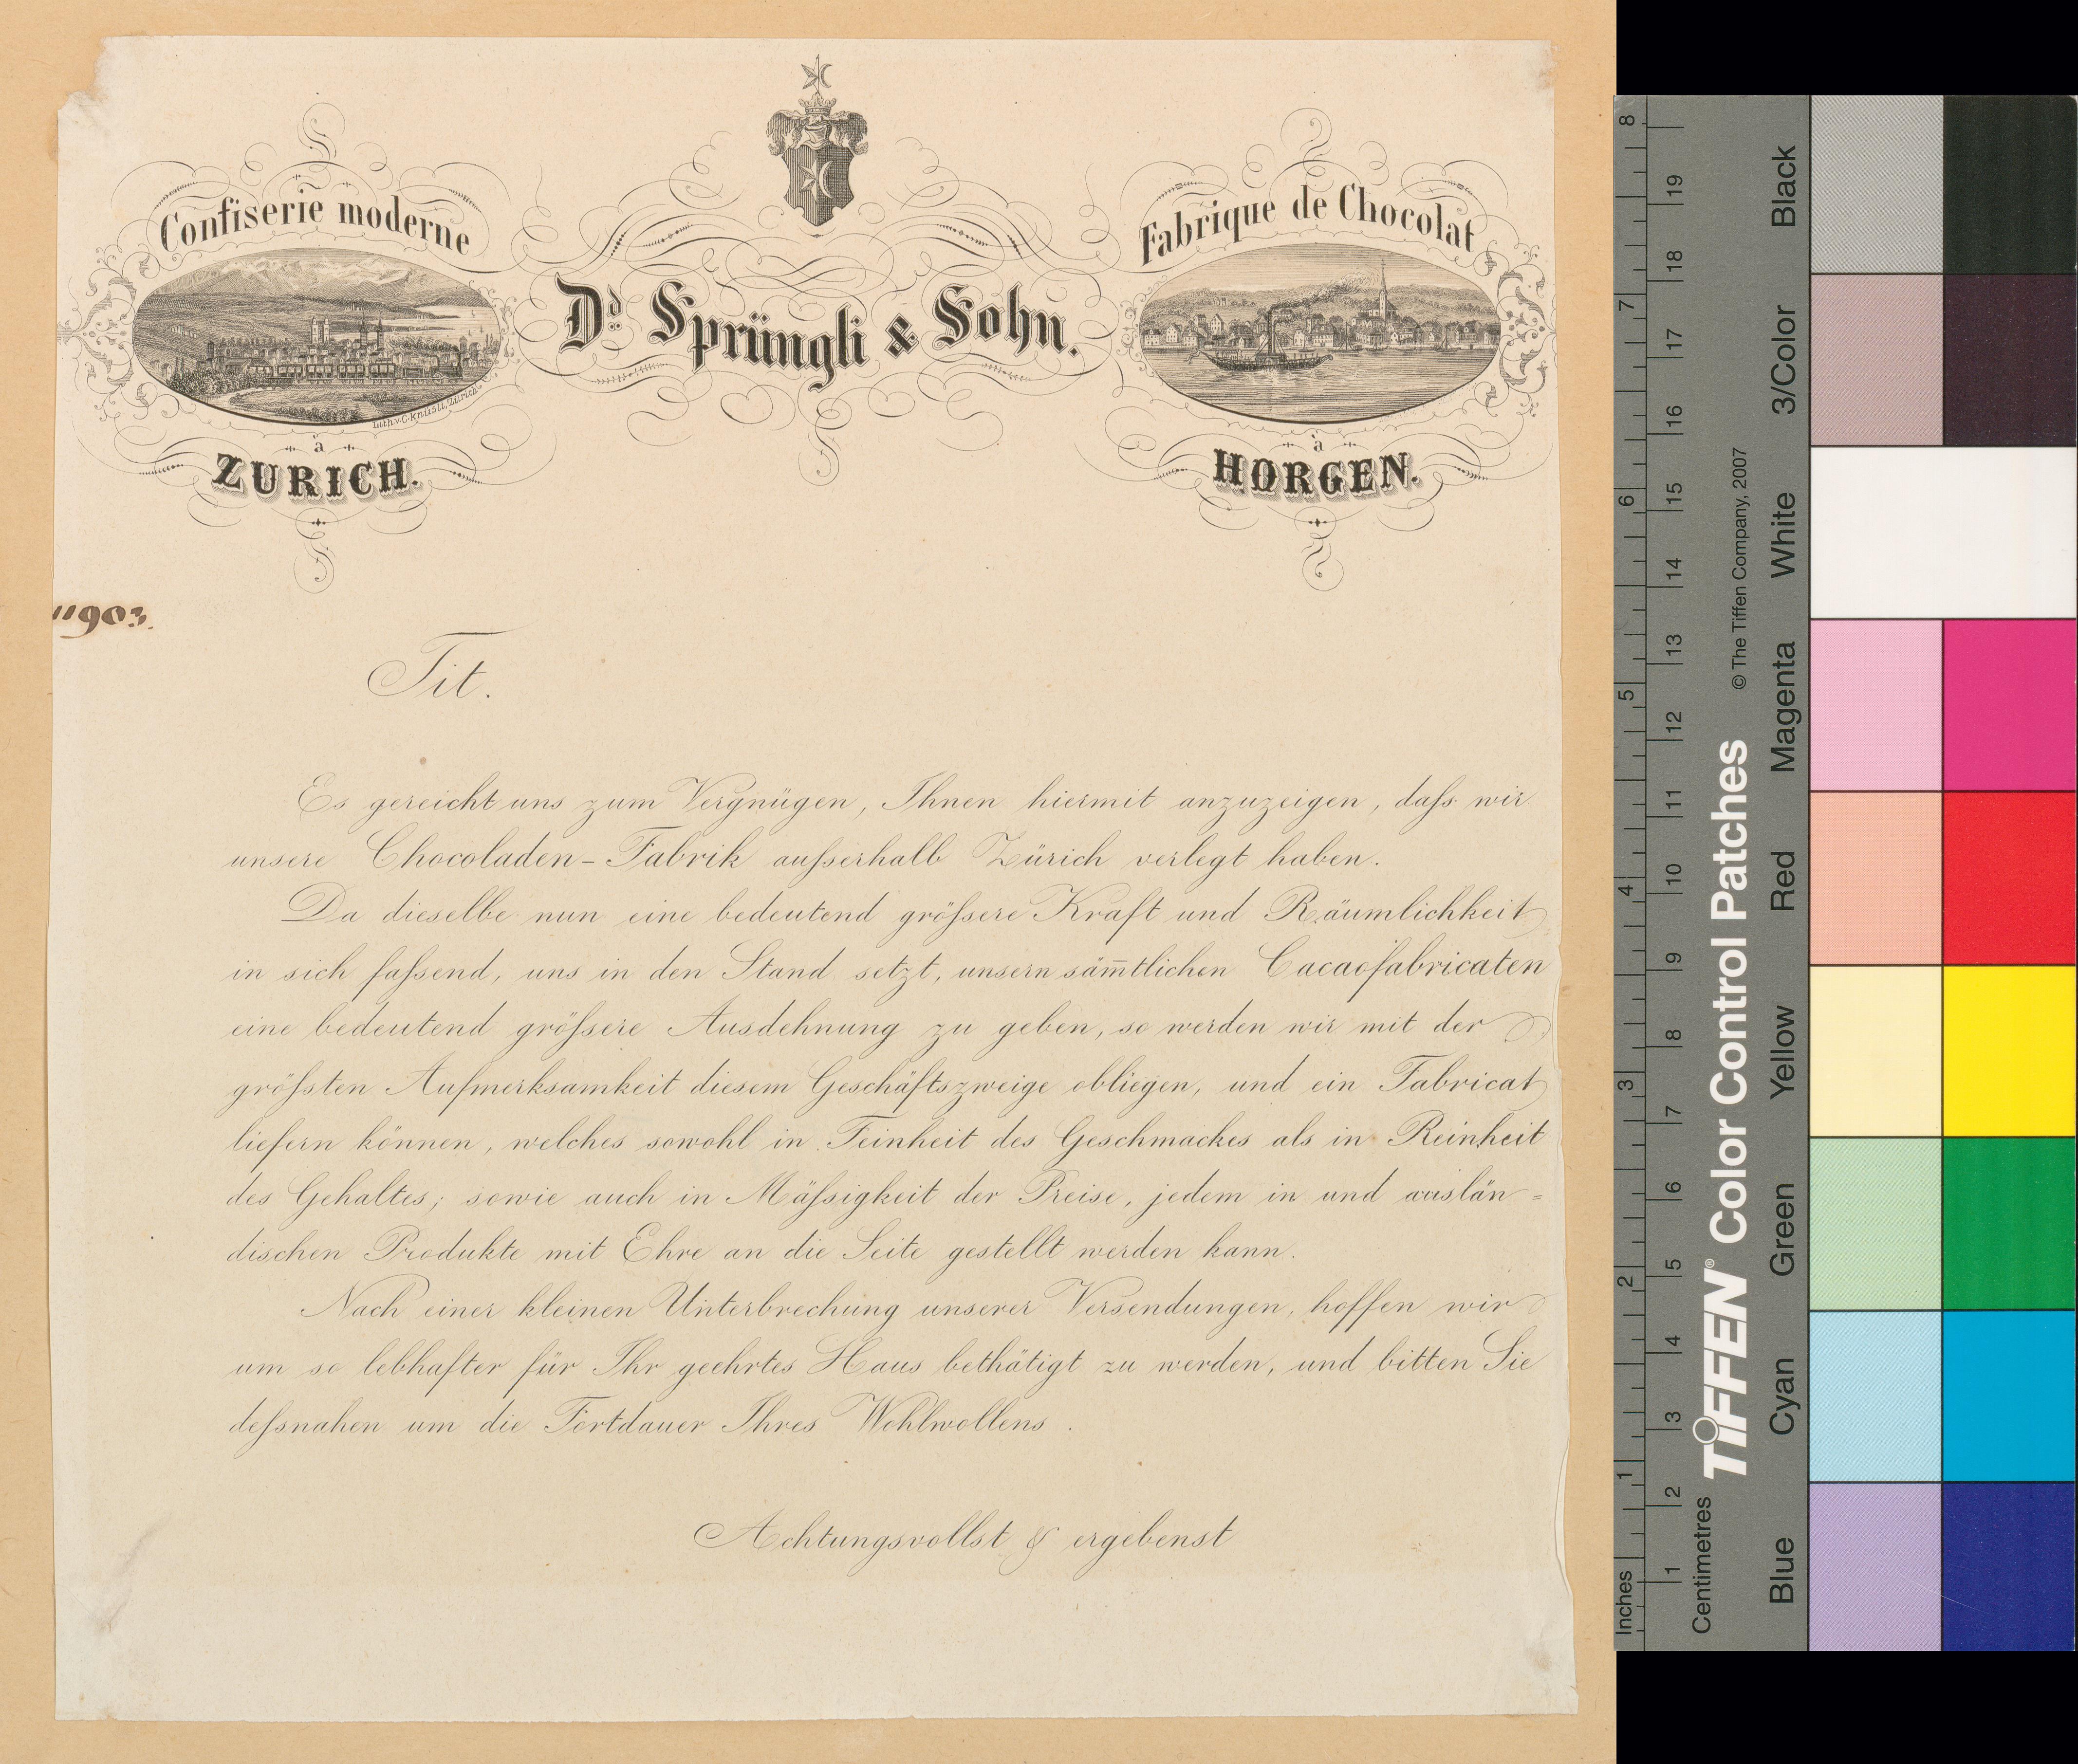 Confiserie moderne
Lith. v. C. Knüsli, Zürich.
à
ZURICH.
Dd. Sprüngli & Sohn.
Fabrique de Chocolat
à
HORGEN.
"903.
Tit.
Es gereicht uns zum Vergnügen, Ihnen hiermit anzuzeigen, daſs wir
unsere Chocoladen-Fabrik auſserhalb Zürich verlegt haben.
Da dieselbe nun eine bedeutend gröſsere Kraft und Räumlichkeit
in sich faſsend, uns in den Stand setzt, unsern säm̅tlichen Cacaofabricaten
eine bedeutend gröſsere Ausdehnung zu geben, so werden wir mit der
gröſsten Aufmerksamkeit diesem Geschäftszweige obliegen, und ein Fabricat
liefern können, welches sowohl in Feinheit des Geschmackes als in Reinheit
des Gehaltes; sowie auch in Mäſsigkeit der Preise, jedem in und auslän=
dischen Produkte mit Ehre an die Seite gestellt werden kann.
Nach einer kleinen Unterbrechung unserer Versendungen, hoffen wir
um so lebhafter für Ihr geehrtes Haus bethätigt zu werden, und bitten Sie
deſsnahen um die Fortdauer Ihres Wohlwollens.
Achtungsvollst & ergebenst
Inches
1 2 3 4 5 6 7 8
Centimetres
1 2 3 4 5 6 7 8 9 10 11 12 13 14 15 16 17 18 19
TIFFEN® Color Control Patches
© The Tiffen Company, 2007
Blue
Cyan
Green
Yellow
Red
Magenta
White
3/Color
Black